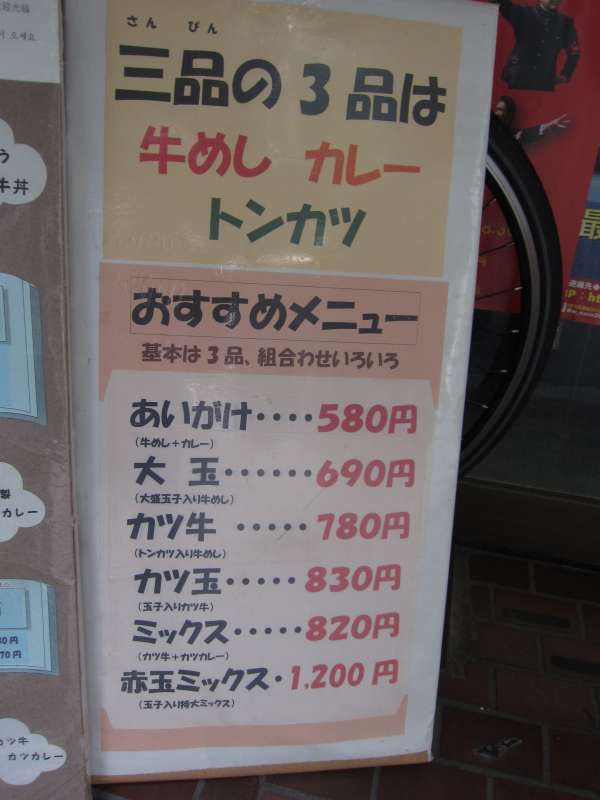 さん びん
三品の3品は
牛めし カレー
トンカツ
おすすめメニュー
基本は3品、組合わせいろいろ
あいがけ････580円
(牛めし+カレー)
大 玉･･････690円
(大盛玉子入り牛めし)
カツ牛 ･････780円
(トンカツ入り牛めし)
カツ玉･････830円
(玉子入りカツ牛)
ミックス･････820円
(カツ牛+カツカレー)
赤玉ミックス･1,200円
(玉子入り特大ミックス)
牛丼
カレー
カツ牛
カツカレー
70円
最